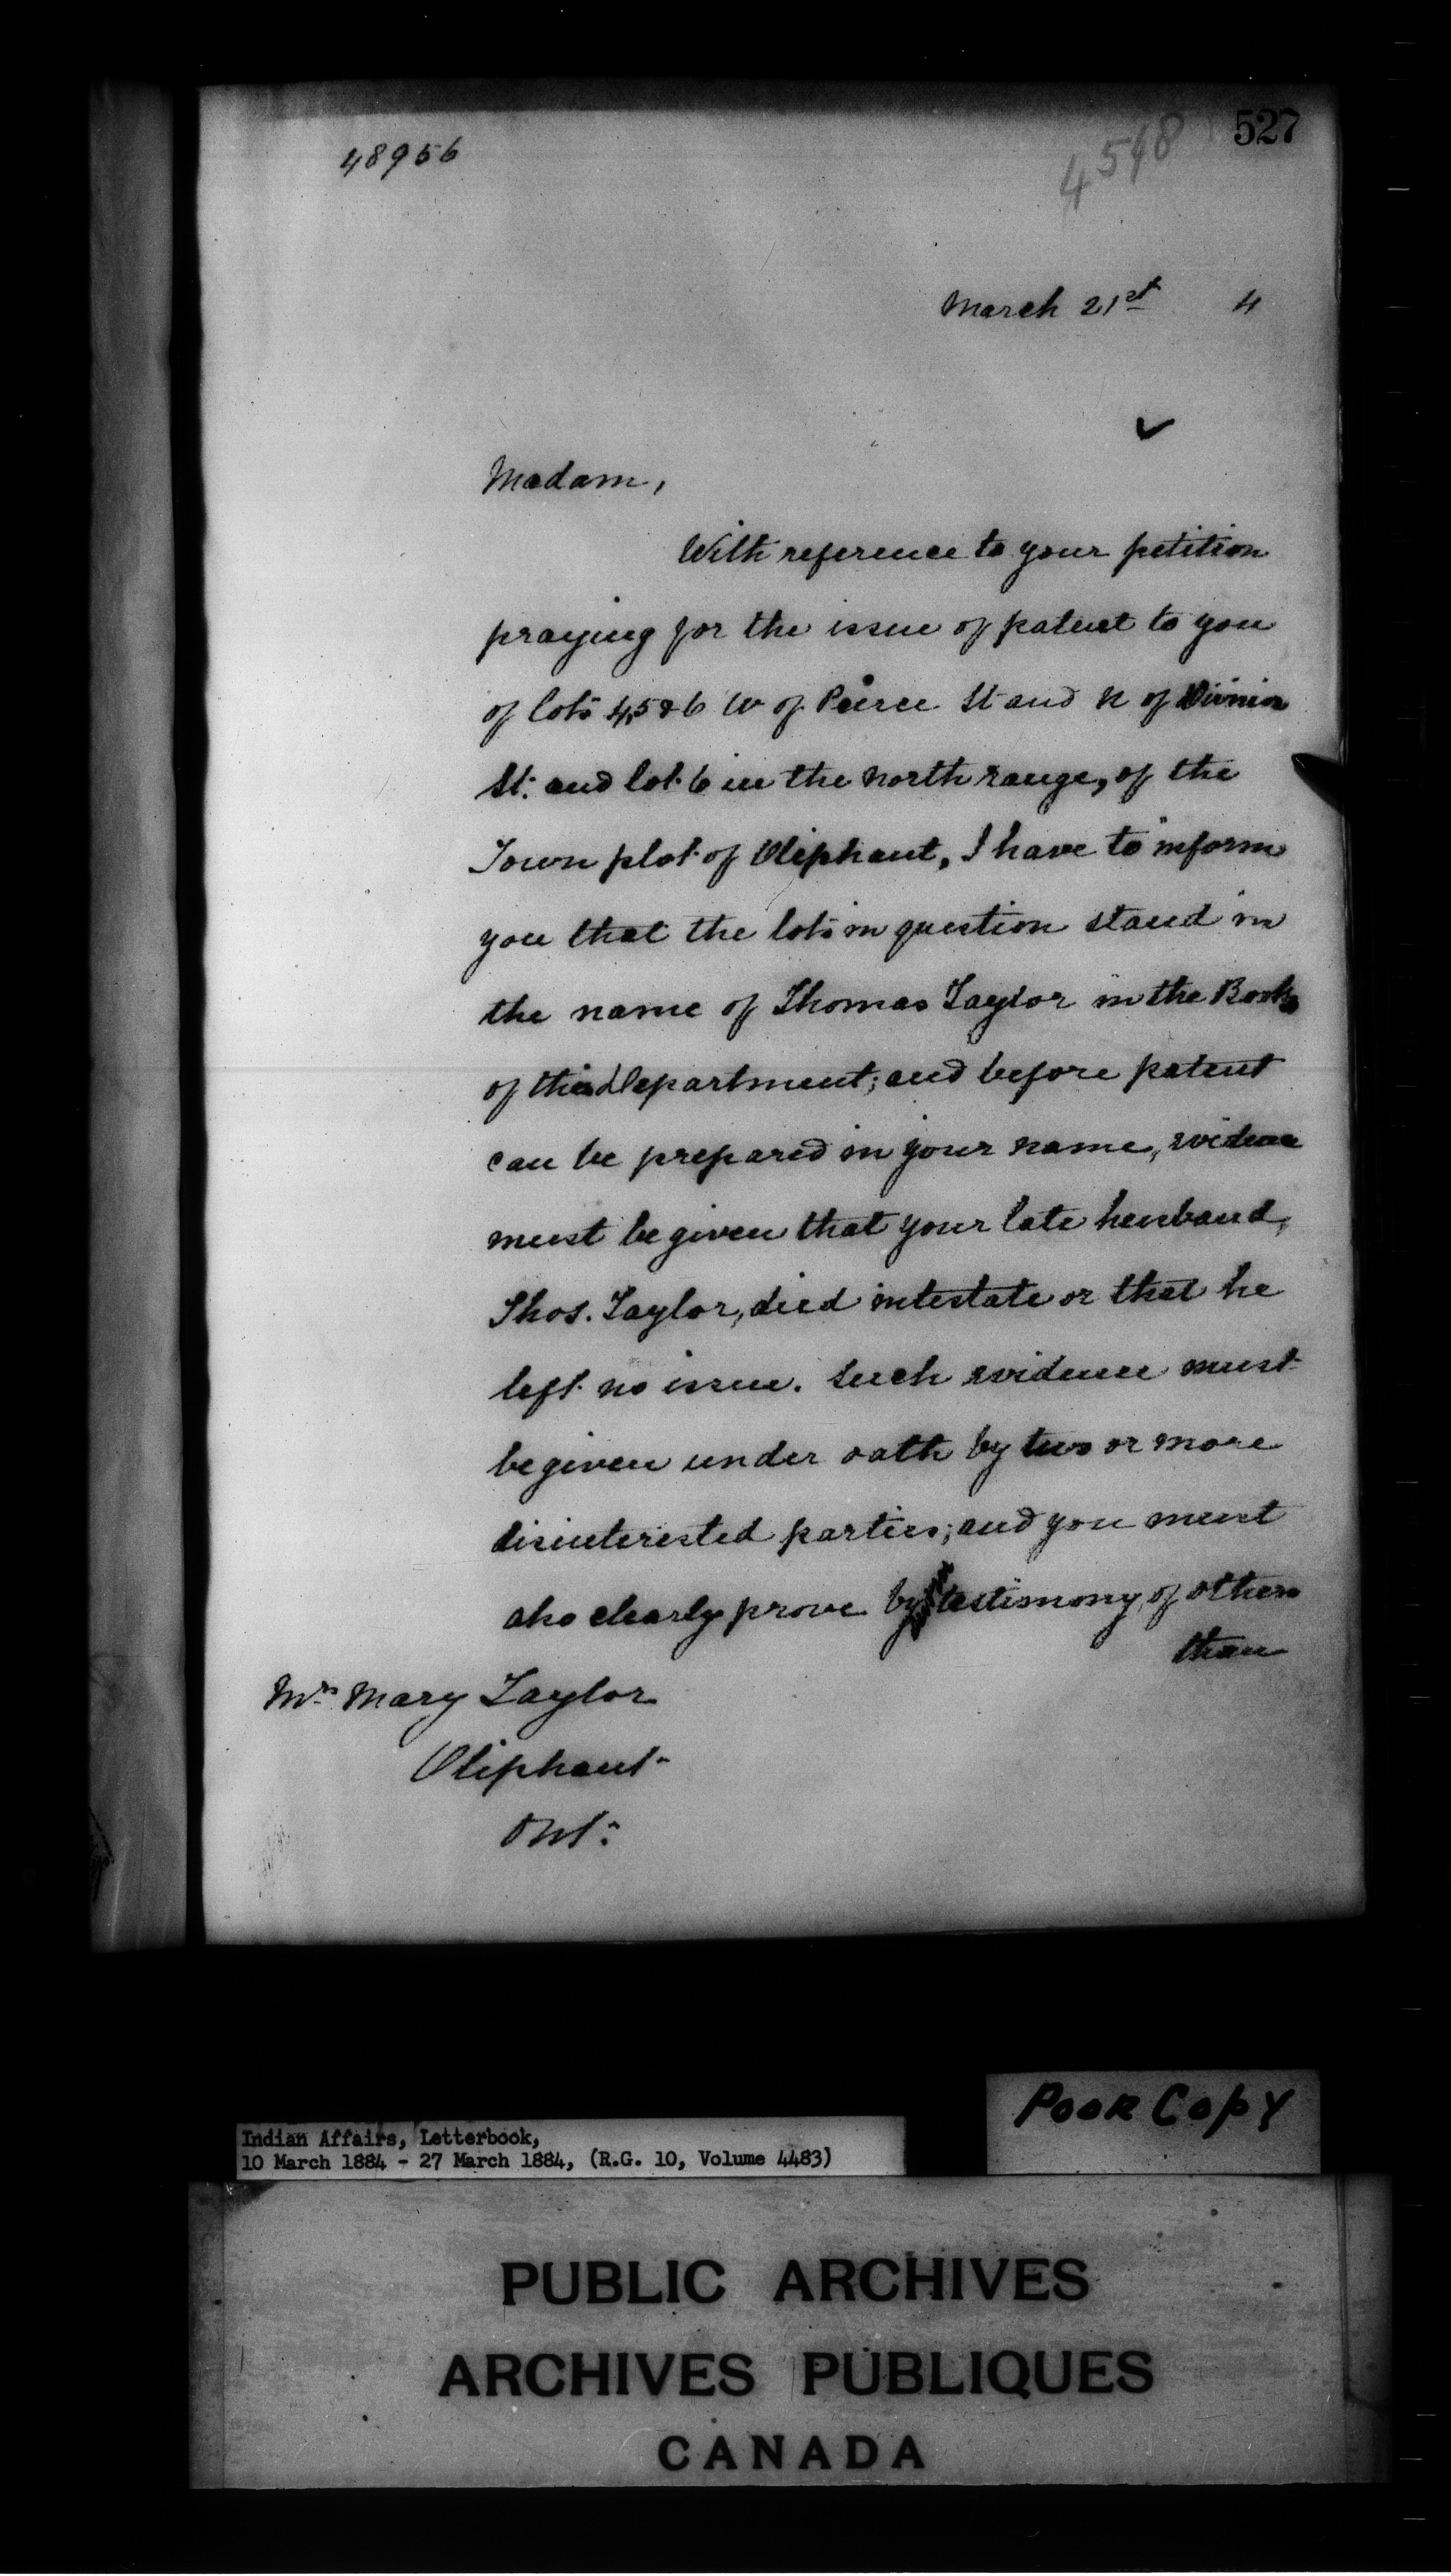 48956
4518
527
March 21st 4
Madam,
With reference to your petition
praying for the issue of patent to you
of lots 4, 5 & 6 W of Peirce St and N of Division
St. and lot 6 in the north range, of the
Town plot of Oliphant, I have to inform
you that the lots in question stand in
the name of Thomas Taylor in the Books
of this Department; and before patent
can be prepared in your name, evidence
must be given that your late husband,
Thos. Taylor, died intestate or that he
left no issue. Such evidence must
be given under oath by two or more
disinterested parties; and you must
also clearly prove by testimony of others
than
Mrs Mary Taylor
Oliphant
Ont.
Poor Copy
Indian Affairs, Letterbook,
10 March 1884 - 27 March 1884, (R.G. 10, Volume 4483)
PUBLIC ARCHIVES
ARCHIVES PUBLIQUES
CANADA